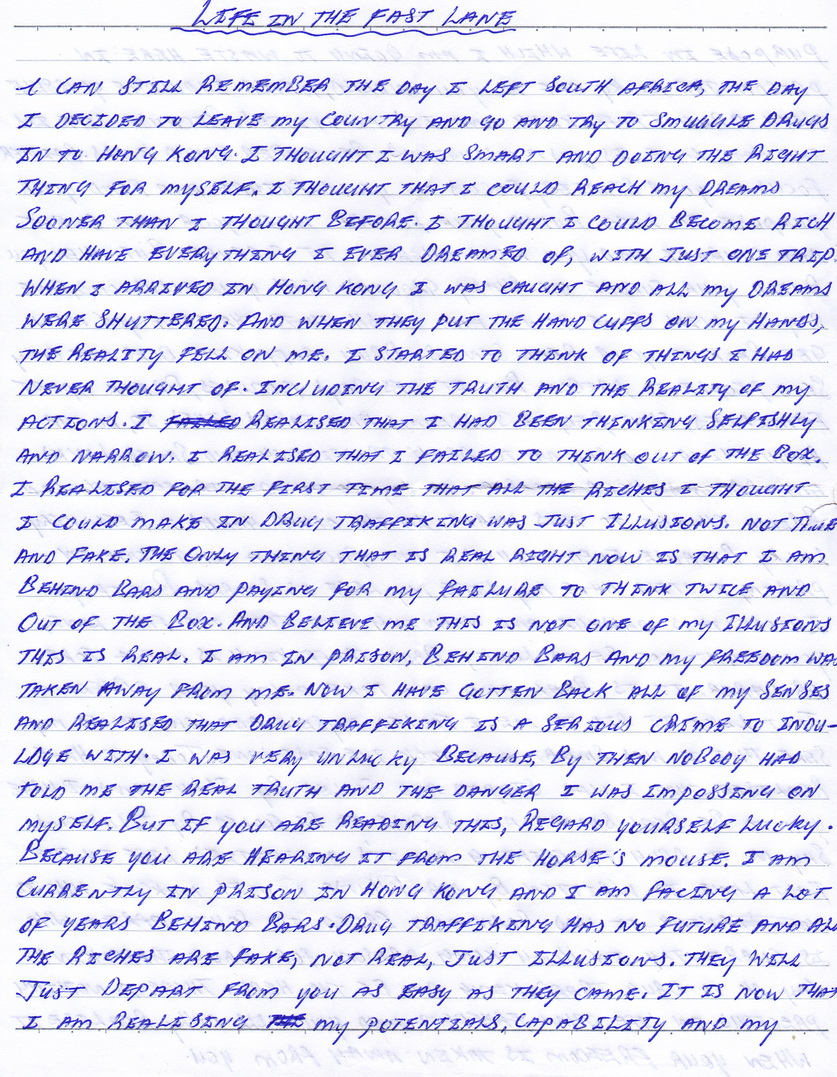 LIFE IN THE FAST LANE
I CAN STILL REMEMBER THE DAY I LEFT SOUTH AFRICA, THE DAY
I DECIDED TO LEAVE MY COUNTRY AND GO AND TRY TO SMUGGLE DRUGS
IN TO HONG KONG. I THOUGHT I WAS SMART AND DOING THE RIGHT
THING FOR MYSELF. I THOUGHT THAT I COULD REACH MY DREAMS
SOONER THAN I THOUGHT BEFORE. I THOUGHT I COULD BECOME RICH
AND HAVE EVERYTHING I EVER DREAMED OF, WITH JUST ONE TRIP.
WHEN I ARRIVED IN HONG KONG I WAS CAUGHT AND ALL MY DREAMS
WERE SHUTTERED. AND WHEN THEY PUT THE HAND CUFFS ON MY HANDS,
THE REALITY FELL ON ME. I STARTED TO THINK OF THINGS I HAD
NEVER THOUGHT OF. INCLUDING THE TRUTH AND THE REALITY OF MY
ACTIONS. I FAILED REALISED THAT I HAD BEEN THINKING SELFISHLY
AND NARROW. I REALISED THAT I FAILED TO THINK OUT OF THE BOX.
I REALISED FOR THE FIRST TIME THAT ALL THE RICHES I THOUGHT
I COULD MAKE IN DRUG TRAFFIKING WAS JUST ILLUSIONS. NOT TRUE
AND FAKE. THE ONLY THING THAT IS REAL RIGHT NOW IS THAT I AM
BEHIND BARS AND PAYING FOR MY FAILURE TO THINK TWICE AND
OUT OF THE BOX. AND BELIEVE ME THIS IS NOT ONE OF MY ILLUSIONS
THIS IS REAL. I AM IN PRISON, BEHIND BARS AND MY FREEDOM WAS
TAKEN AWAY FROM ME. NOW I HAVE GOTTEN BACK ALL OF MY SENSES
AND REALISED THAT DRUG TRAFFIKING IS A SERIOUS CRIME TO INDU-
LDGE WITH. I WAS VERY UNLUCKY BECAUSE, BY THEN NOBODY HAD
TOLD ME THE REAL TRUTH AND THE DANGER I WAS IMPOSSING ON
MYSELF. BUT IF YOU ARE READING THIS, REGARD YOURSELF LUCKY.
BECAUSE YOU ARE HEARING IT FROM THE HORSE'S MOUSE. I AM
CURRENTLY IN PRISON IN HONG KONG AND I AM FACING A LOT
OF YEARS BEHIND BARS. DRUG TRAFFIKING HAS NO FUTURE AND ALL
THE RICHES ARE FAKE, NOT REAL, JUST ILLUSIONS. THEY WILL
JUST DEPART FROM YOU AS EASY AS THEY CAME. IT IS NOW THAT
I AM REALISING MY POTENTIALS, CAPABILITY AND MY